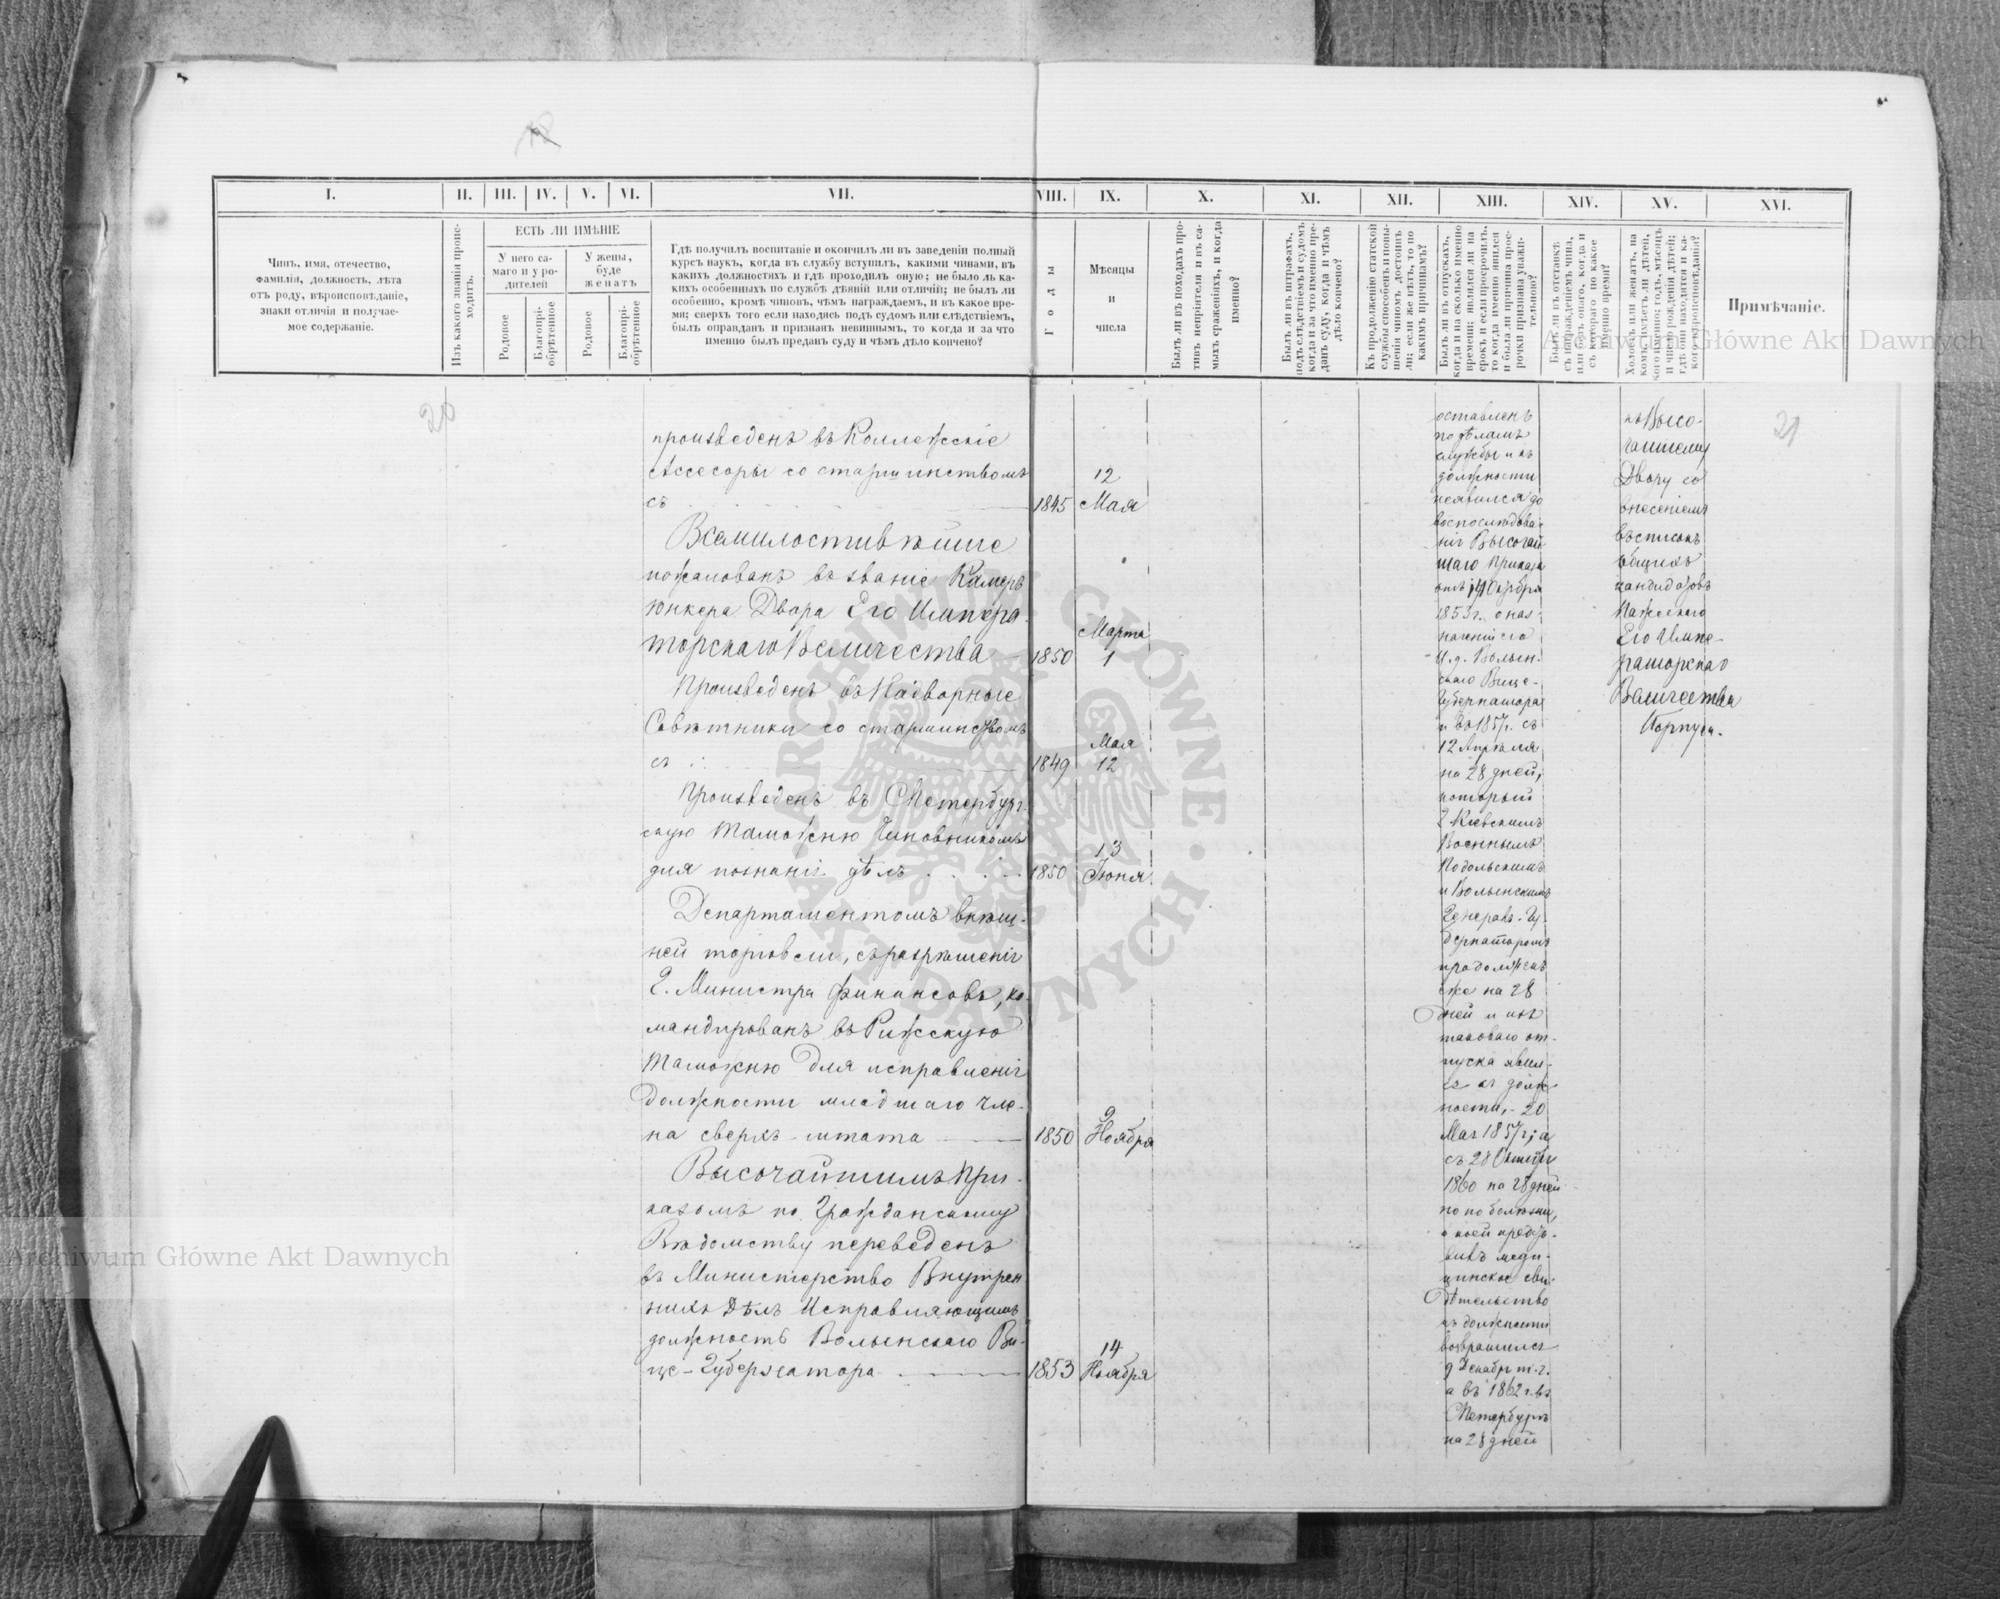 I.
II.
III.
IV.
V.
VI.
VII.
VIII.
IX.
X.
XI.
XII.
XIII.
XIV.
XV.
XVI.
Чинъ, имя, отечество,
фамилія, должность, лѣта
отъ роду, вѣроисповѣданіе,
знаки отличія и получае-
мое содержаніе.
Изъ какого званія проис-
ходитъ.
ЕСТЬ ЛИ ИМѢНІЕ
У него са-
маго и у ро-
дителей
У жены,
буде
женатъ
Родовое
Благопрі-
обрѣтенное
Родовое
Благопрі-
обрѣтенное
Гдѣ получилъ воспитаніе и окончилъ ли въ заведеніи полный
курсъ наукъ, когда въ службу вступилъ, какими чинами, въ
какихъ должностяхъ и гдѣ проходилъ оную; не было ль ка-
кихъ особенныхъ по службѣ дѣяній или отличій; не былъ ли
особенно, кромѣ чиновъ, чѣмъ награждаемъ, и въ какое вре-
мя; сверхъ того если находясь подъ судомъ или слѣдствіемъ,
былъ оправданъ и признанъ невиннымъ, то когда и за что
именно былъ преданъ суду и чѣмъ дѣло кончено?
Годы
Мѣсяцы
и
числа
Былъ ли въ походахъ про-
тивъ непріятеля и въ са-
мыхъ сраженіяхъ, и когда
именно?
Былъ ли въ штрафахъ,
подъ слѣдствіемъ и судомъ
когда и за что именно пре-
данъ суду, когда и чѣмъ
дѣло кончено?
Къ продолженію статской
службы способенъ и повы-
шенія чиномъ достоинъ
ли; если же нѣтъ, то по
какимъ причинамъ?
Былъ ли въ отпускахъ,
когда и на сколько именно
времени; являлся ли на
срокъ и если просрочилъ,
то когда именно явился
и была ли причина прос-
рочки признана уважи-
тельною?
Былъ ли въ отставкѣ
съ награжденіемъ чина,
или безъ онаго, когда и
съ котораго по какое
именно время?
Холостъ или женатъ, на
комъ, имѣетъ ли дѣтей,
кого именно; годъ, мѣсяцъ
и число рожденія дѣтей;
гдѣ они находятся и ка-
кого вѣроисповѣданія?
Примѣчаніе.
20
21
произведенъ въ Коллежскіе
Ассесоры со старшинствомъ
съ 1845 12 Мая
Всемилостивѣйше
пожалованъ въ званіе Камеръ
Юнкера Двора Его Импера-
торскаго Величества 1850 Марта 1
Произведенъ въ Надворные
Совѣтники со старшинствомъ
съ 1849 Мая 12
Произведенъ въ СПетербург-
скую Таможню Чиновникомъ
для познаніе дѣлъ 1850 13 Іюня
Департаментомъ внѣш-
ней торговли, съ разрѣшенія
Г. Министра финансовъ, ко-
мандированъ въ Рижскую
Таможню для исправленія
должности младшаго чле-
на сверхъ штата 1850 9 Ноября
Высочайшимъ При-
казомъ по Гражданскому
Вѣдомству переведенъ
въ Министерство Внутрен
нихъ Дѣлъ Исправляющимъ
должность Волынскаго Ви-
це-Губернатора 1853 14 Ноября
оставленъ
по дѣламъ
службы и къ
должности
неявился до
воспослѣдова-
нія Высочай
шаго Приказа
1853 г. о наз-
наченіи его
И. д. Волын-
скаго Вице-
Губернатора
и въ 1857 г. съ
12 Апрѣля
на 28 дней,
который
Г. Кіевскимъ
Военнымъ
Подольскимъ
и Волынскимъ
Генералъ-Гу-
бернаторомъ
продолженъ
еже на 28
дней и изъ
таковаго от-
пуска явил-
ся къ долж-
ности, 20
Мая 1857 г; а
съ 28 Октября
1860 на 28 дней
но по болѣзни,
о коей предъя-
вилъ меди-
цинское сви-
дѣтельство
къ должности
возвратился
9 Декабря т. г.
а въ 1862 г. въ
СПетербургъ
на 28 дней
къ Высо-
чайшему
Двору со
внесеніемъ
въ списокъ
общихъ
кандидатовъ
Пажескаго
Его Импе-
раторскаго
Величества
Корпуса.
Archiwum Główne Akt Dawnych
Archiwum Główne Akt Dawnych
ARCHIWUM GŁÓWNE AKT DAWNYCH